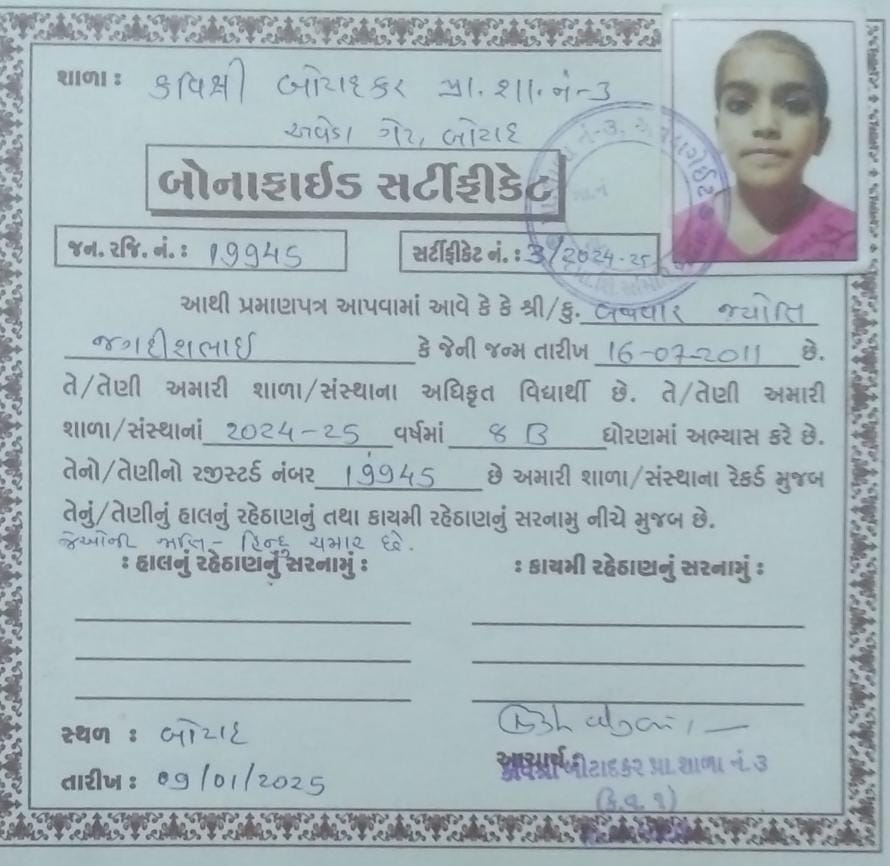 શાળા : કવિશ્રી બોટાદકર પ્રા. શા. નં-3
અવેડા ગેટ, બોટાદ
બોનાફાઈડ સર્ટીફીકેટ
જન. રજિ. નં. : 19945 સર્ટીફીકેટ નં. : 3/2024-25
આથી પ્રમાણપત્ર આપવામાં આવે કે કે શ્રી/કુ. જ્યોતિ
જગદીશભાઈ કે જેની જન્મ તારીખ 16-07-2011 છે.
તે/તેણી અમારી શાળા/સંસ્થાના અધિકૃત વિદ્યાર્થી છે. તે/તેણી અમારી
શાળા/સંસ્થાનાં 2024-25 વર્ષમાં 8 B ધોરણમાં અભ્યાસ કરે છે.
તેનો/તેણીનો રજીસ્ટર્ડ નંબર 19945 છે અમારી શાળા/સંસ્થાના રેકર્ડ મુજબ
તેનું/તેણીનું હાલનું રહેઠાણનું તથા કાયમી રહેઠાણનું સરનામુ નીચે મુજબ છે.
જેઓની જાતિ - હિન્દુ ચમાર છે.
: હાલનું રહેઠાણનું સરનામું : : કાયમી રહેઠાણનું સરનામું :
સ્થળ : બોટાદ
આચાર્ય
તારીખ : 09/01/2025 કવિશ્રી બોટાદકર પ્રા. શાળા નં. ૩